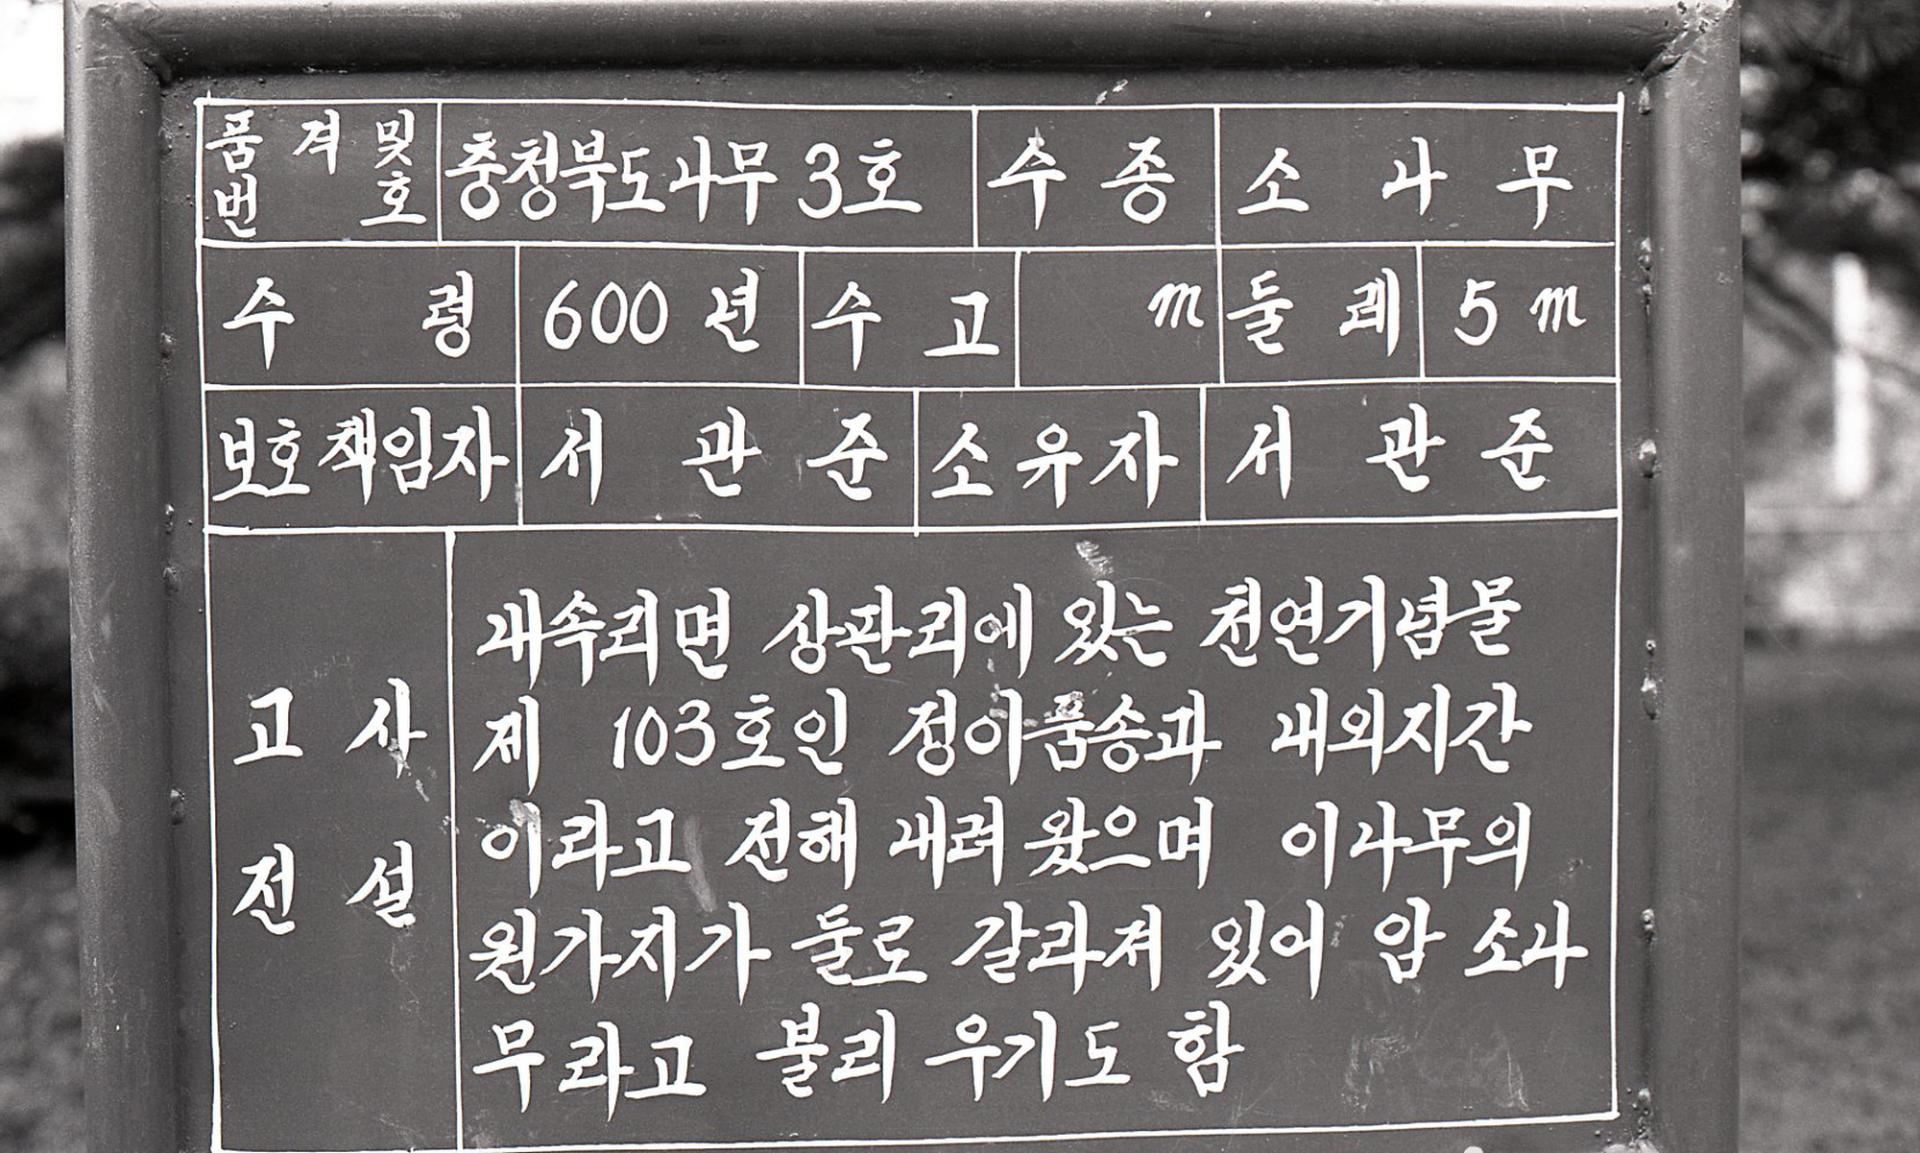 품 격 및 충청북도나무 3호 수 종 소 나 무
번 호
수 령 600 년 수 고 m 둘 레 5 m
보호책임자 서 관 준 소유자 서 관 준
고 사
전 설
내속리면 상판리에 있는 천연기념물
제 103호인 정이품송과 내외지간
이라고 전해 내려 왔으며 이나무의
원가지가 둘로 갈라져 있어 암 소나
무라고 불리 우기도 함